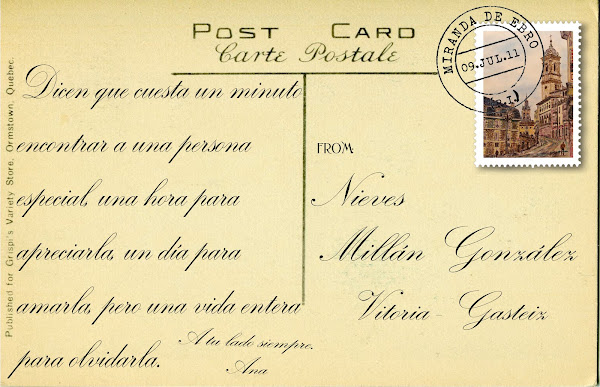 POST CARD
Carte Postale
Published for Grisp:'s Variety Store, Ormstown, Quebec.
Dicen que cuesta un minuto
encontrar a una persona
especial, una hora para
apreciarla, un día para
amarla, pero una vida entera
para olvidarla.
A tu lado siempre.
Ana
MIRANDA DE EBRO
09.JUL.11
FROM:
Nieves
Millán González
Vitoria - Gasteiz